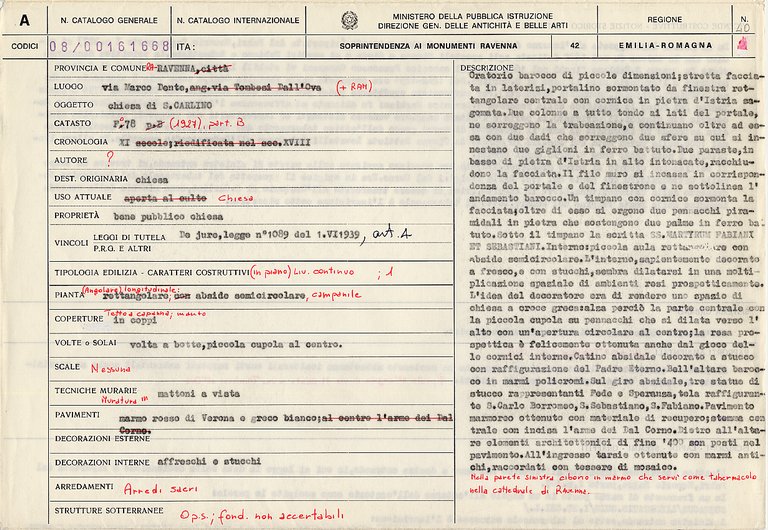 A
N. CATALOGO GENERALE
N. CATALOGO INTERNAZIONALE
MINISTERO DELLA PUBBLICA ISTRUZIONE
DIREZIONE GEN. DELLE ANTICHITÀ E BELLE ARTI
REGIONE
N.
40
CODICI
08/00161668
ITA:
SOPRINTENDENZA AI MONUMENTI RAVENNA
42
EMILIA-ROMAGNA
PROVINCIA E COMUNE RA RAVENNA, città
LUOGO via Marco Dente, ang. via Tombesi Dall'Ova (+ RAM)
OGGETTO chiesa di S.CARLINO
CATASTO F° 78 p.B (1927), part. B
CRONOLOGIA XI secolo;riedificata nel sec.XVIII
AUTORE ?
DEST. ORIGINARIA chiesa
USO ATTUALE aperta al culto Chiesa
PROPRIETÀ bene pubblico chiesa
VINCOLI LEGGI DI TUTELA De jure,legge n°1089 del 1.VI1939, art. 4
P.R.G. E ALTRI
TIPOLOGIA EDILIZIA - CARATTERI COSTRUTTIVI (in piano) Liv. continuo ; 1
(Angolare) longitudinale:
PIANTA rettangolare; con abside semicircolare, campanile
Tetto a capanna; manto
COPERTURE in coppi
VOLTE o SOLAI volta a botte,piccola cupola al centro.
SCALE Nessuna
TECNICHE MURARIE mattoni a vista
Muratura in
PAVIMENTI marmo rosso di Verona e greco bianco;al centro l'arme dei Dal
Corno.
DECORAZIONI ESTERNE
DECORAZIONI INTERNE affreschi e stucchi
ARREDAMENTI Arredi sacri
STRUTTURE SOTTERRANEE Op.s; fond. non accertabili
DESCRIZIONE
Oratorio barocco di piccole dimensioni;stretta faccia-
ta in laterizi,portalino sormontato da finestra ret-
tangolare centrale con cornice in pietra d'Istria sa-
gomata.Due colonne a tutto tondo ai lati del portale,
ne sorreggono la trabeazione,e continuano oltre ad es-
sa con due dadi che sorreggono due sfere su cui si in-
nestano due giglioni in ferro battuto.Due paraste,in
basso di pietra d'Istria in alto intonacate,racchiu-
dono la facciata.Il filo muro si incassa in corrispon-
denza del portale e del finestrone e ne sottolinea l'
andamento barocco.Un timpano con cornice sormonta la
facciata;oltre di esso si ergono due pennacchi pira-
midali in pietra che sostengono due palme in ferro bat
tuto.Sotto il timpano la scritta SS.MARTIRUM FABIANI
ET SEBASTIANI.Interno:piccola aula rettangolare con
abside semicircolare.L'interno,sapientemente decorato
a fresco,e con stucchi,sembra dilatarsi in una molti-
plicazione spaziale di ambienti resi prospetticamente.
L'idea del decoratore era di rendere uno spazio di
chiesa a croce greca:alza perciò la parte centrale con
la piccola cupola su pennacchi che si dilata verso l'
alto con un'apertura circolare al centro;la resa pro-
spettica è felicemente ottenuta anche dal gioco del-
le cornici interne.Catino absidale decorato a stucco
con raffigurazione del Padre Eterno.Bell'altare baroc-
co in marmi policromi.Sul giro absidale,tre statue di
stucco rappresentanti Fede e Speranza,tela raffiguran-
te S.Carlo Borromeo,S.Sebastiano,S.Fabiano.Pavimento
marmoreo ottenuto con materiale di recupero;stemma cen
trale con incisa l'arme dei Dal Corno.Dietro all'alta-
re elementi architettonici di fine '400 son posti nel
pavimento.All'ingresso tarsie ottenute con marmi anti-
chi,raccordati con tessere di mosaico.
Nella parete sinistra ciborio in marmo che servì come tabernacolo
nella cattedrale di Ravenna.